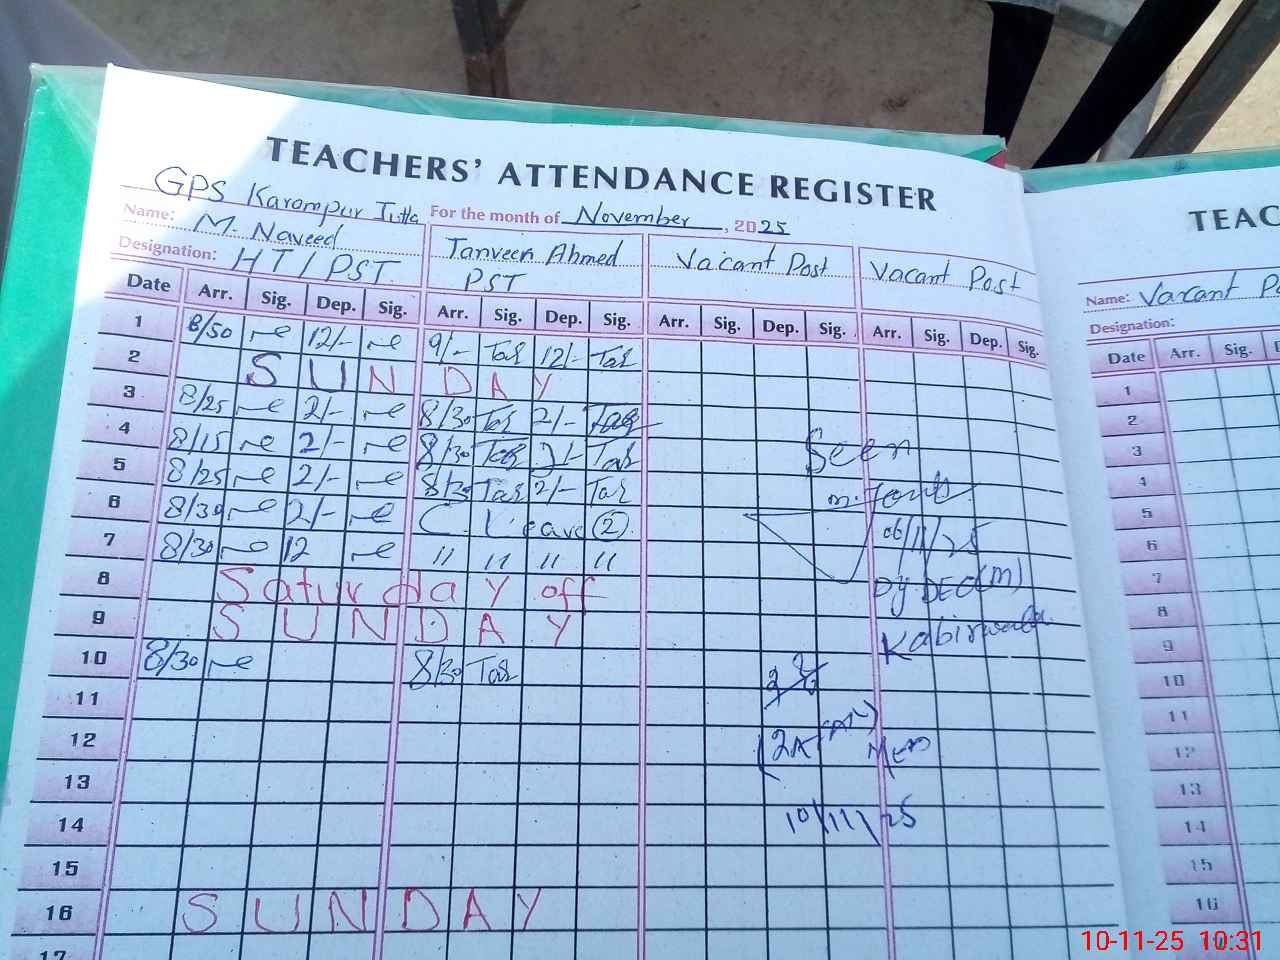 TEACHERS' ATTENDANCE REGISTER
GPS Karampur
For the month of November, 2025
Name: M. Naveed Tanveer Ahmed Vacant Post Vacant Post
Designation: HT/PST PST
Date Arr. Sig. Dep. Sig. Arr. Sig. Dep. Sig. Arr. Sig. Dep. Sig. Arr. Sig. Dep. Sig.
1 8/50 12/- 9/- Tar 12/- Tar
2 SUNDAY
3 8/25 2/- 8/30 Tar 2/- Tar
4 8/15 2/- 8/30 Tar 2/- Tar
5 8/25 2/- 8/30 Tar 2/- Tar
6 8/30 2/- C. Leave 2
7 8/30 12 " " " "
8 Saturday off
9 SUNDAY
10 8/30 8/30 Tar
11
12
13
14
15
16 SUNDAY
17
Seen
06/11/25
Dy DEO(M)
Kabirwala
10/11/25
TEAC
Name: Vacant
Designation:
Date Arr. Sig.
1
2
3
4
5
6
7
8
9
10
11
12
13
14
15
16
10-11-25 10:31